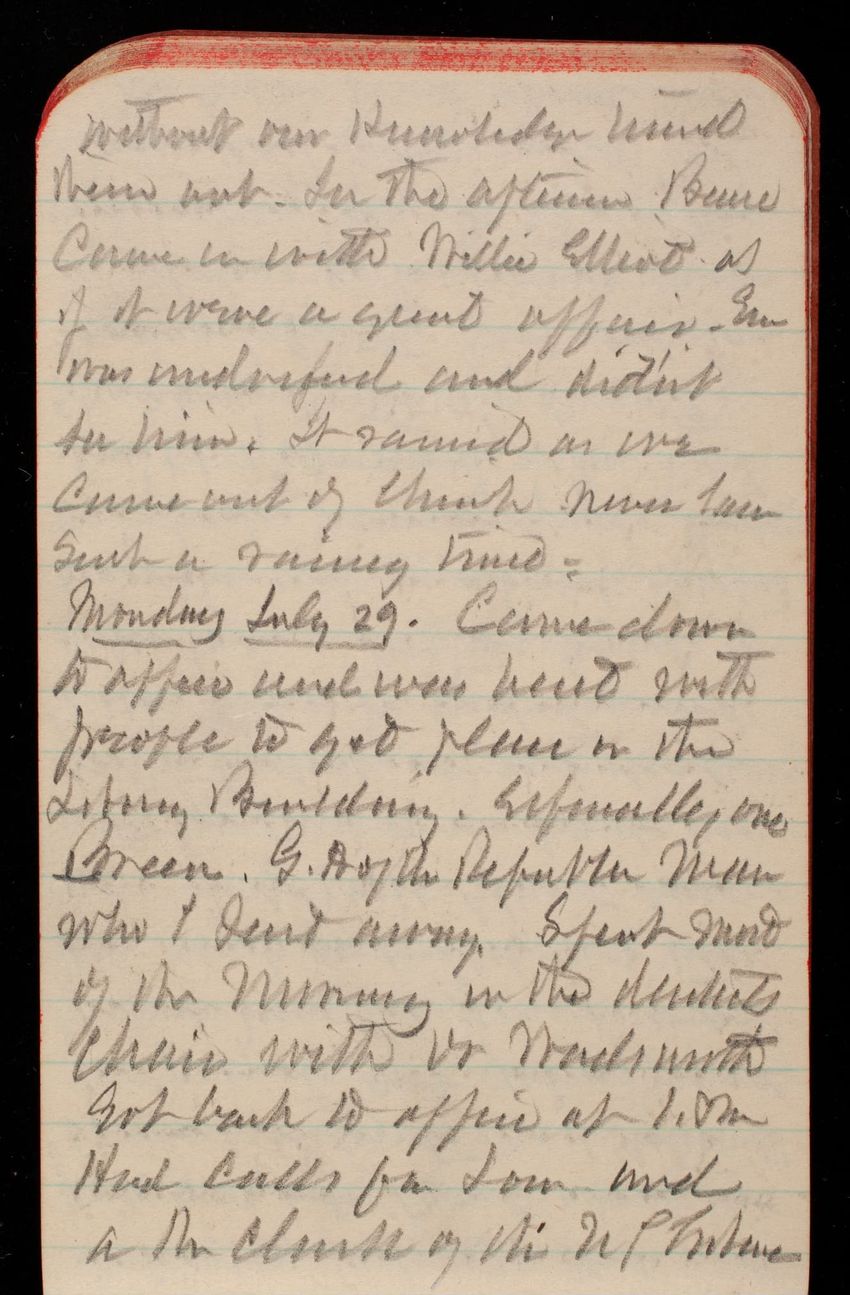 without our Knowledge hired
them out. In the afternoon
Came in with Willie Elliot as
if it were a great affair. Em
was and didn't
see him. It rained as we
Came out of Church never saw
such a rainy time.
Monday July 29. Came down
to office and was beset with
people to get place in the
Library Building. Especially one
Breen. G. Man
who I sent away. Spent most
of the Morning in the dentists
Chair with Dr Wadsworth
Got back to office at
Had Calls from and
a the Clerk of the